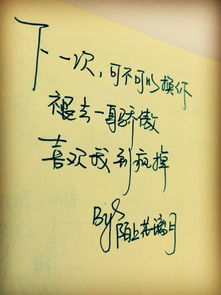 下一次,可不可以换你
褪去一身骄傲
喜欢我到疯掉
By
陌上若璃月